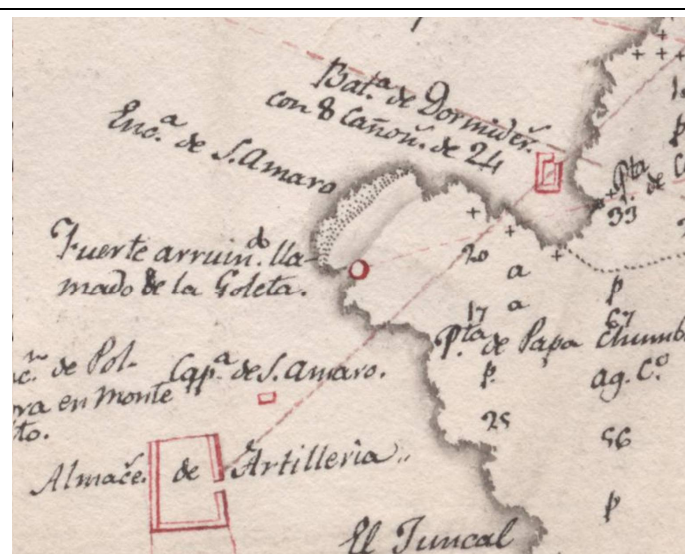 Bat.ª de Dormider.ˢ
con 8 cañon.ˢ de 24
Enc.ª de S. Amaro
P.ta
de C
33
Fuerte arruin.do lla-
mado de la Goleta.
20
a
17
a
p
67
P.ta de Papa Chumb
p.
ag. C.º
25
56
p
de Pol-
ora en monte
to.
Cap.ª de S. Amaro.
Almace. de Artilleria.
El Juncal